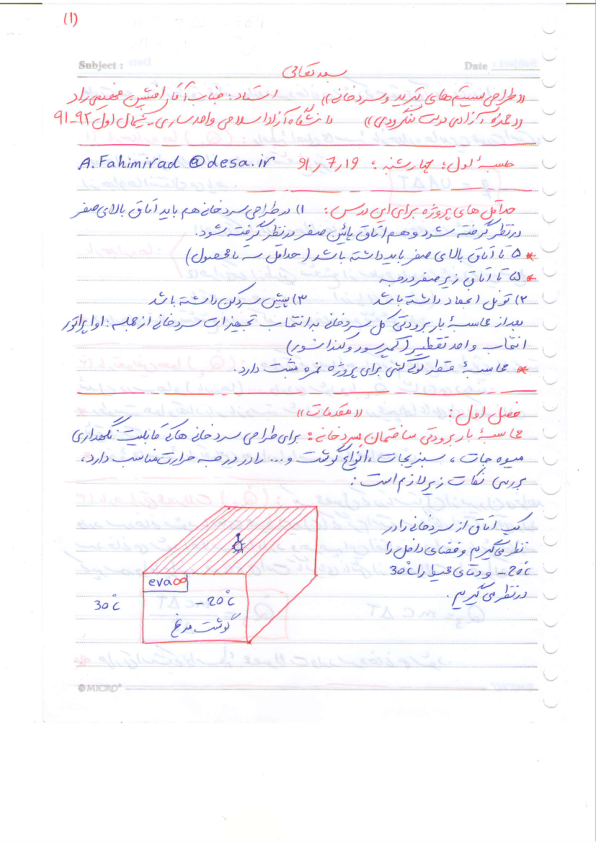 (1)
Subject :
Date :
بسمه تعالی
«طراحی سیستم های تبرید و سردخانه» استاد: جناب آقای افشین فهیمی راد
«حمزه آزادی درب شکرودی» دانشگاه آزاد اسلامی واحد ساری - نیمسال اول ۹۲-۹۱
جلسه اول: چهارشنبه: ۹۱/۷/۱۹ A.Fahimirad @desa.ir
حداقل های پروژه برای این درس: ۱) در طراحی سردخانه هم باید اتاق بالای صفر
در نظر گرفته شود و هم اتاق پائین صفر در نظر گرفته شود.
* ۵ تا اتاق بالای صفر باید داشته باشد (حداقل سه تا محصول)
* ۵ تا اتاق زیر صفر درجه
۲) تونل انجماد داشته باشد ۳) پیش سردکن داشته باشد
بعد از محاسبهٔ بار برودتی کل سردخانه به انتخاب تجهیزات سردخانه از جمله: اواپراتور
انتخاب واحد تقطیر (کمپرسور و کندانسور)
* محاسبهٔ قطر لوله کشی برای پروژه نمره مثبت دارد.
فصل اول: «مقدمات»
محاسبهٔ بار برودتی ساختمان سردخانه: برای طراحی سردخانه هائی قابلیت نگهداری
میوه جات، سبزیجات، انواع گوشت و... را در درجه حرارت مناسب دارد،
بررسی نکات زیر لازم است:
یک اتاق از سردخانه را در
نظر می گیریم و فضای داخل را
-20°C و دمای محیط را 30°C
در نظر می گیریم.
eva
30°C
-20°C
گوشت مرغ
MICRO